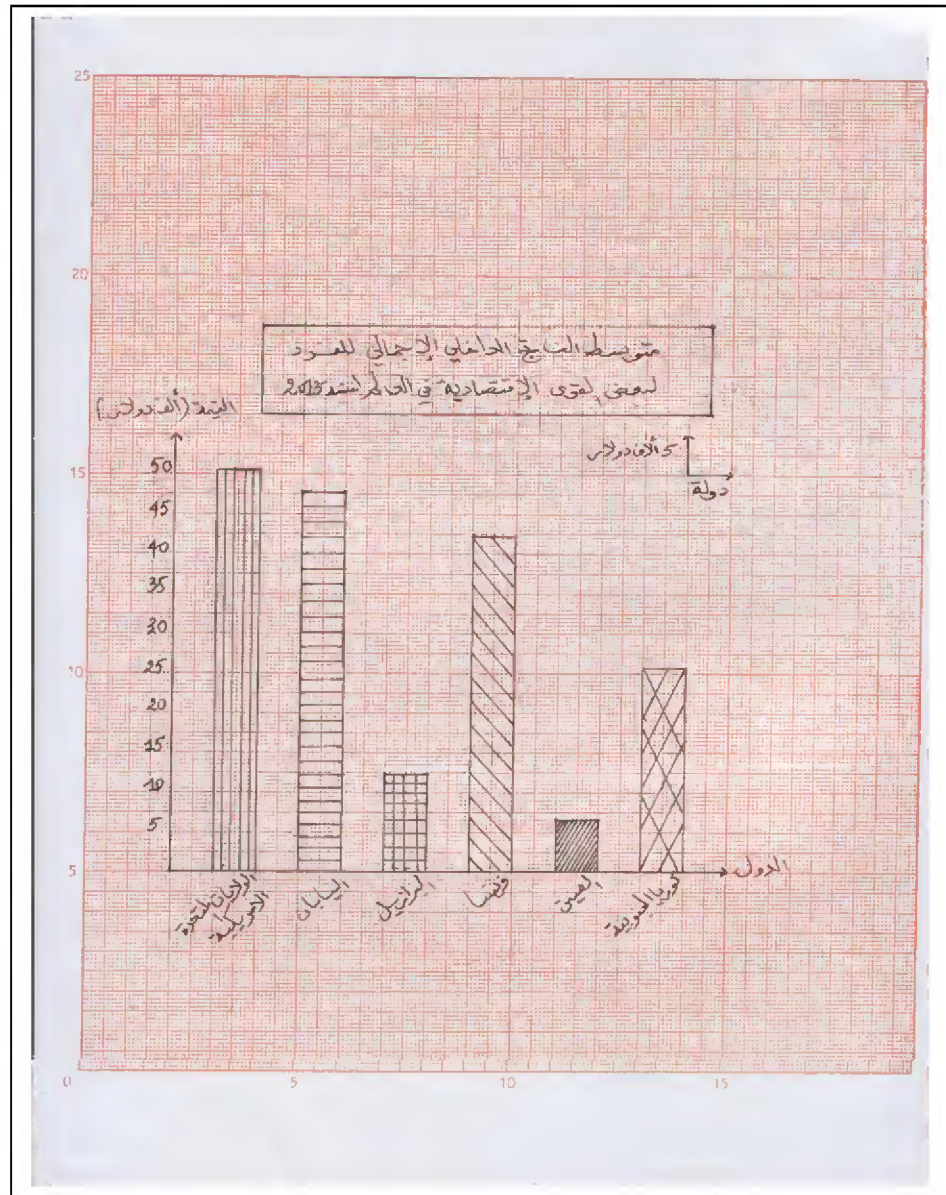 25
20
متوسط الناتج الداخلي الإجمالي للفرد
لبعض القوى الإقتصادية في العالم لسنة 2013
القيمة (ألف دولار)
5 ألاف دولار
دولة
15
50
45
40
35
30
25
20
15
10
5
10
5
الدول
الولايات المتحدة
الامريكية
اليابان
البرازيل
فرنسا
الصين
كوريا الجنوبية
0
5
10
15